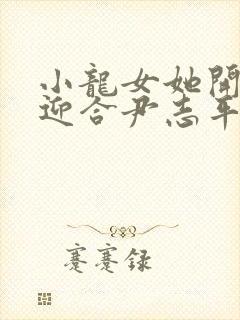 小龍女她開
迎合尹志平
蹇蹇録